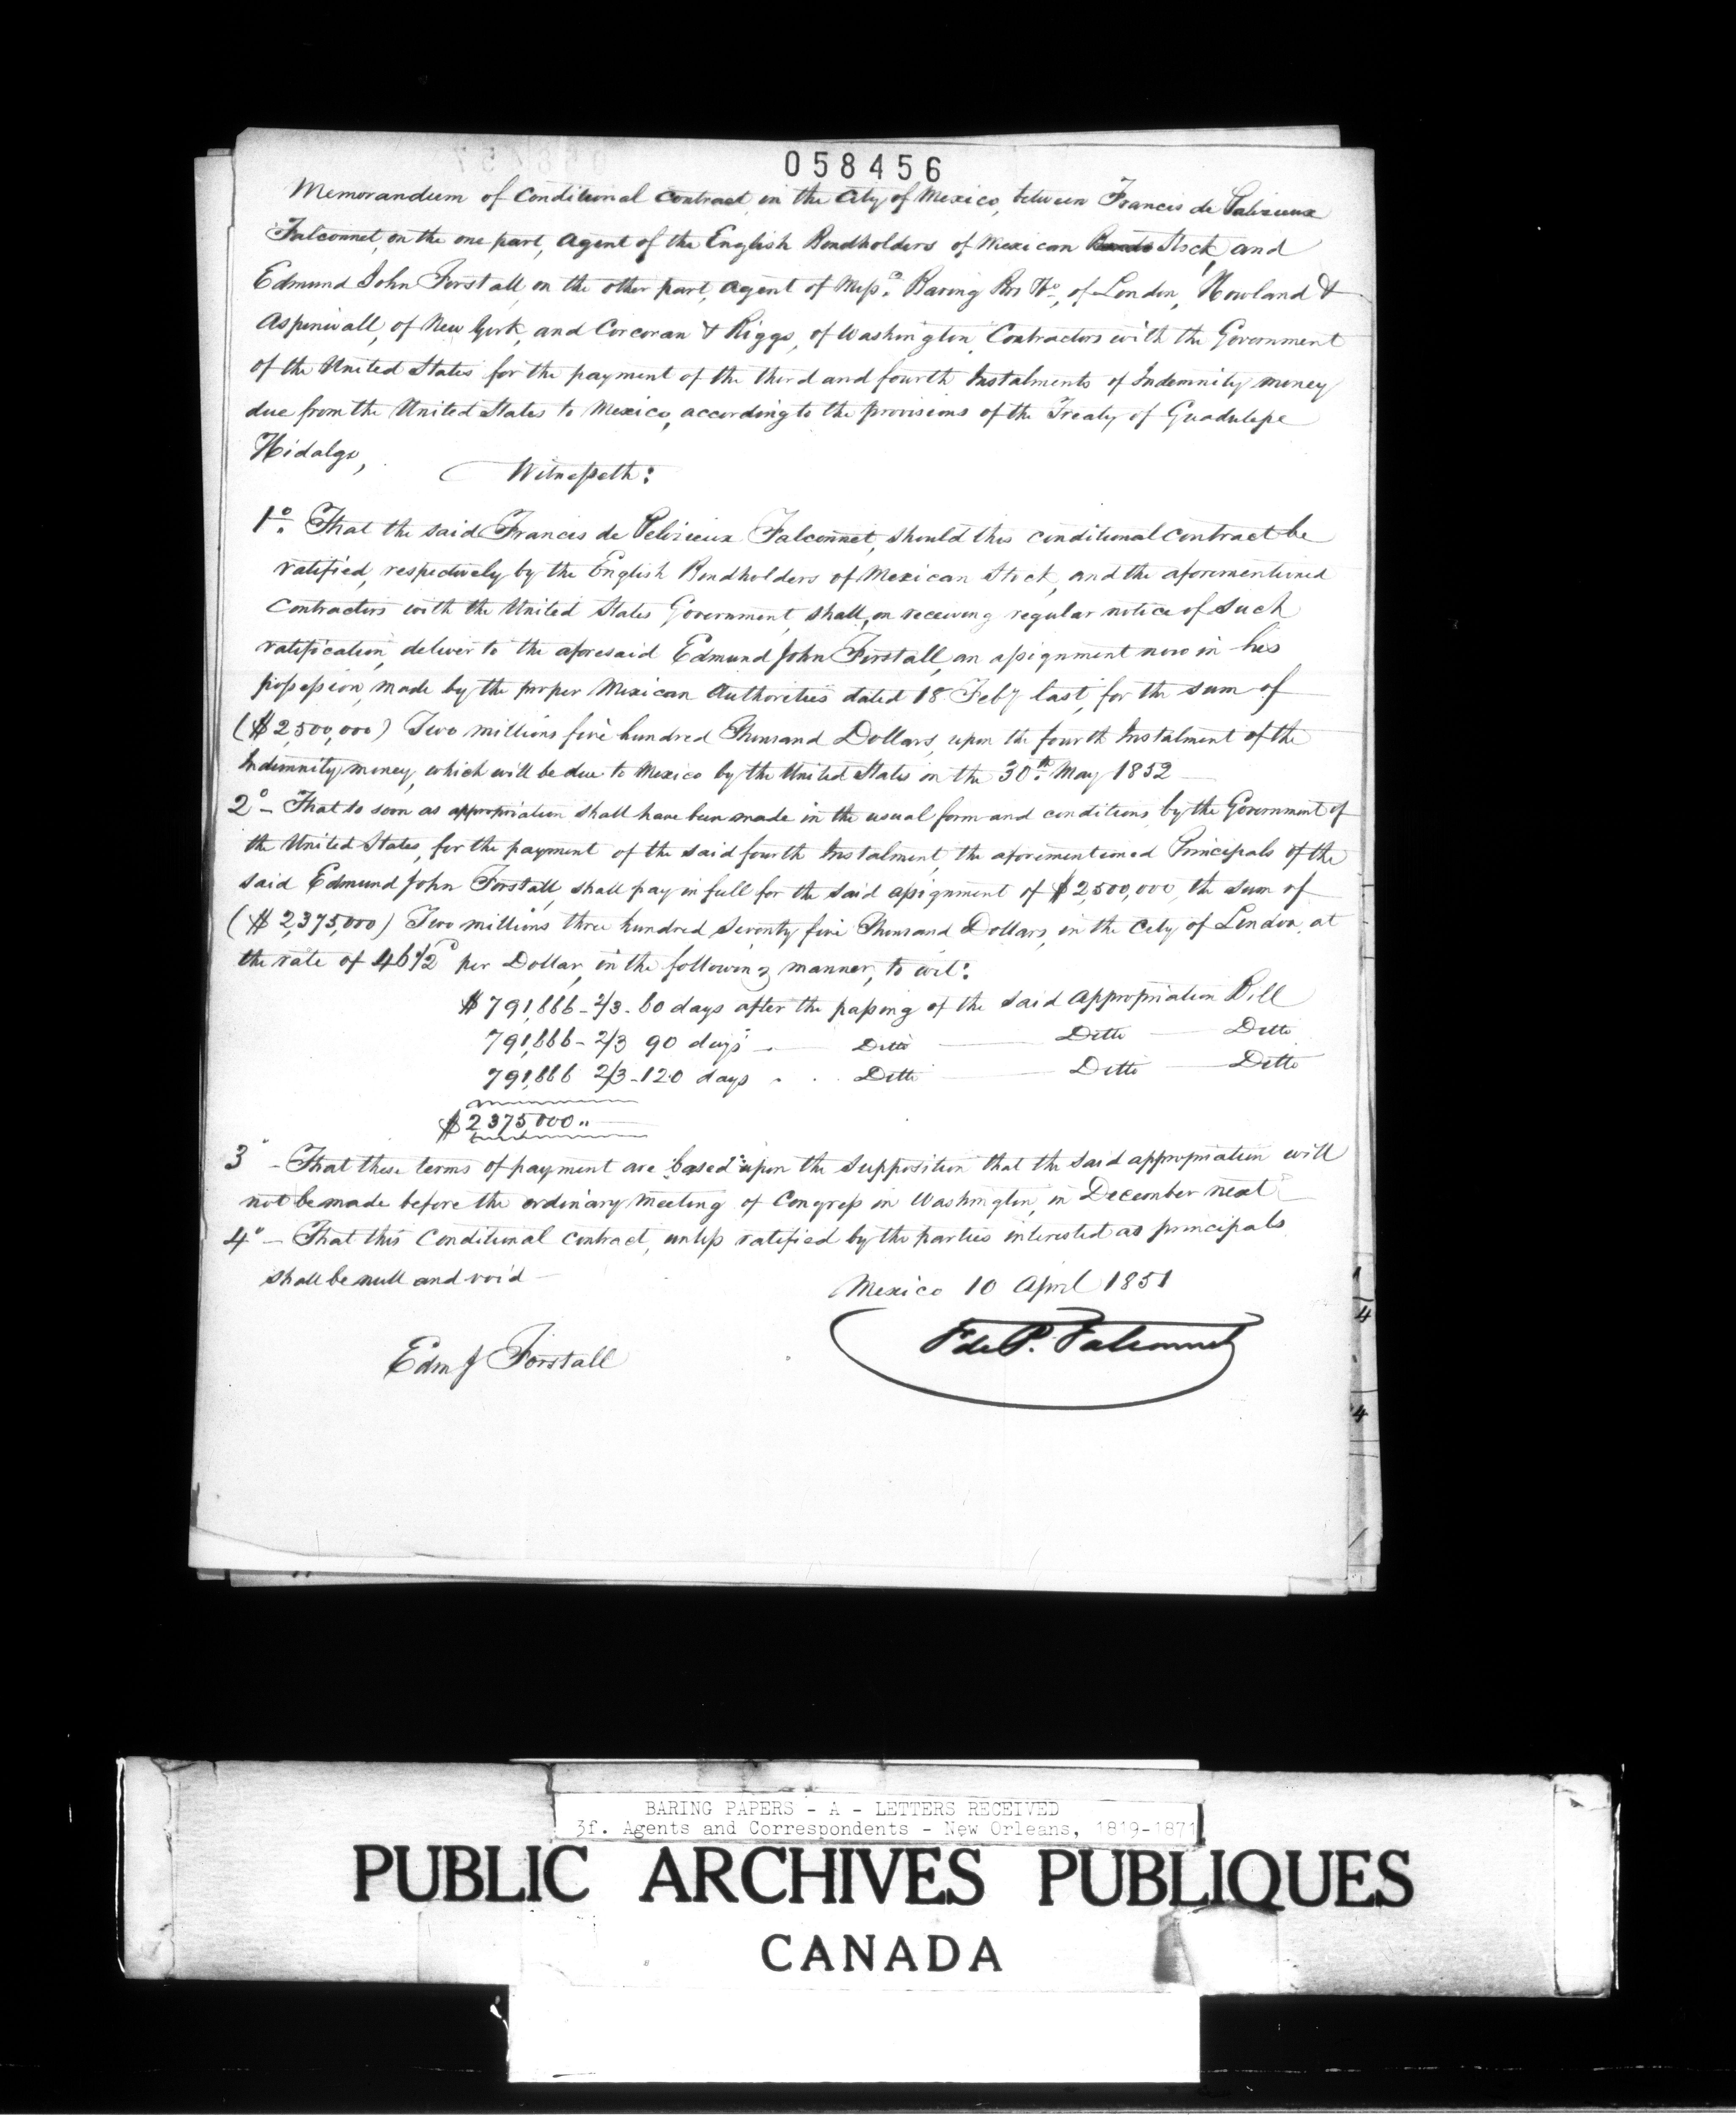 058456
Memorandum of Conditional Contract, in the City of Mexico, between Francis de Palezieux
Falconnet, on the one part, Agent of the English Bondholders of Mexican Stock, and
Edmund John Forstall, on the other part, Agent of Messrs. Baring Bros & Co, of London, Howland &
Aspinwall, of New York, and Corcoran & Riggs, of Washington, Contractors with the Government
of the United States for the payment of the third and fourth Instalments of Indemnity money
due from the United States to Mexico, according to the provisions of the Treaty of Guadulupe
Hidalgo,
Witnesseth:
1o. That the said Francis de Pelizieux Falconnet, should this conditional contract be
ratified, respectively by the English Bondholders of Mexican Stock, and the aforementioned
Contractors with the United States Government, shall, on receiving regular notice of such
ratification, deliver to the aforesaid Edmund John Forstall, an assignment now in his
possession, made by the proper Mexican Authorities dated 18 Feby last, for the sum of
($2,500,000) Two millions five hundred Thousand Dollars, upon the fourth Instalment of the
Indemnity money, which will be due to Mexico by the United States on the 30th. May 1852
2o - That so soon as appropriation shall have been made in the usual form and conditions, by the Government of
the United States, for the payment of the said fourth Instalment, the aforementioned Principals of the
said Edmund John Forstall, shall pay in full for the said assignment of $2,500,000, the sum of
($2,375,000) Two millions three hundred Seventy five Thousand Dollars, in the City of London, at
the rate of 46 1/2d per Dollar, in the following manner, to wit:
$ 791,666 - 2/3 - 60 days after the passing of the said Appropriation Bill
791,666 - 2/3 90 days Ditto Ditto Ditto
791,666 2/3 - 120 days Ditto Ditto Ditto
$ 2375000 "
3o - That these terms of payment are based upon the supposition that the said appropriation will
not be made before the ordinary meeting of Congress in Washington, in December next
4o - That this Conditional contract, unless ratified by the parties interested as principals
shall be null and void
Mexico 10 April 1851
Edm J Forstall
F de P. Falconnet
BARING PAPERS - A - LETTERS RECEIVED
3f. Agents and Correspondents - New Orleans, 1819-1871
PUBLIC ARCHIVES PUBLIQUES
CANADA